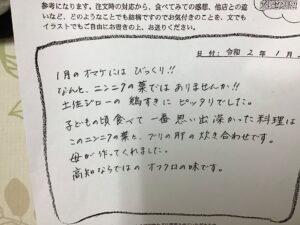 参考になります。注文時の対応から、食べてみての感想、他店との違
いなど、どのようなことでも結構ですのでお気付きのことを、文でも
イラストでもご自由にお書きの上、お送りください。
日付：令和 2 年 1 月
1月のオマケには びっくり!!
なんと、ニンニクの葉ではありませんか!!
土佐ジローの 鶏すきに ピッタリでした。
子どもの頃 食べて 一番 思い出深かった料理は
このニンニクの葉と、ブリの肝の 炊き合わせです。
母が 作ってくれました。
高知ならではの オフクロの味です。